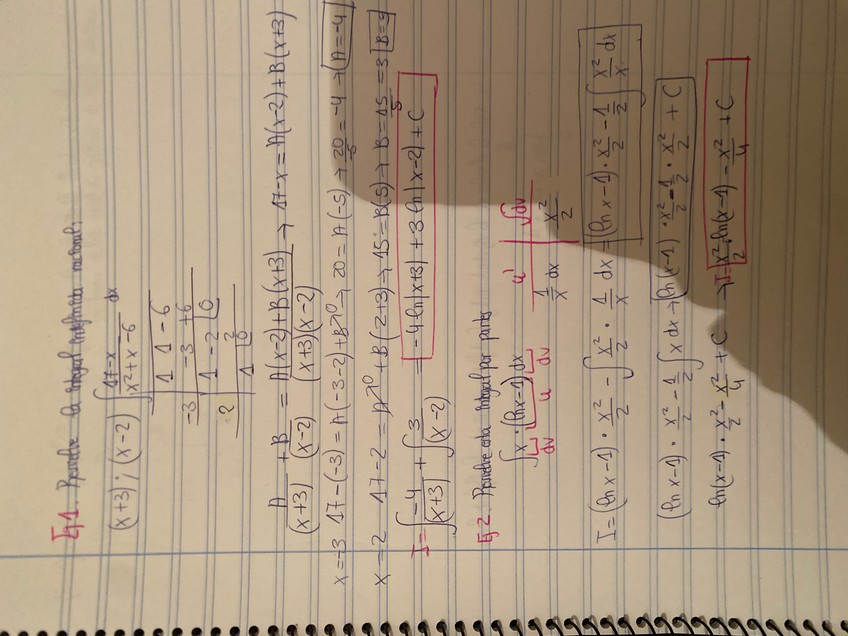 Ej 1. Resuelve la integral indefinida racional:
(x+3); (x-2) ∫ 17-x / x²+x-6 dx
1 1 -6
-3 -3 +6
1 -2 0
2 2
1 0
A/(x+3) + B/(x-2) = A(x-2)+B(x+3) / (x+3)(x-2) → 17-x = A(x-2)+B(x+3)
x=-3 17-(-3) = A(-3-2)+B·0 → 20 = A(-5) → 20/-5 = -4 → A=-4
x=2 17-2 = A·0 + B(2+3) → 15 = B(5) → B = 15/5 = 3 B=3
I = ∫ -4/(x+3) + ∫ 3/(x-2) = -4 ln|x+3| + 3 ln|x-2| + C
Ej 2. Resuelve esta integral por partes
∫ x · (ln x-1) dx u' ∫dv
dv u dv 1/x dx x²/2
I = (ln x-1) · x²/2 - ∫ x²/2 · 1/x dx = (ln x-1) · x²/2 - 1/2 ∫ x²/x dx
(ln x-1) · x²/2 - 1/2 ∫ x dx → ln(x-1) · x²/2 - 1/2 · x²/2 + C
ln(x-1) · x²/2 - x²/4 + C → I = x²/2 · ln(x-1) - x²/4 + C